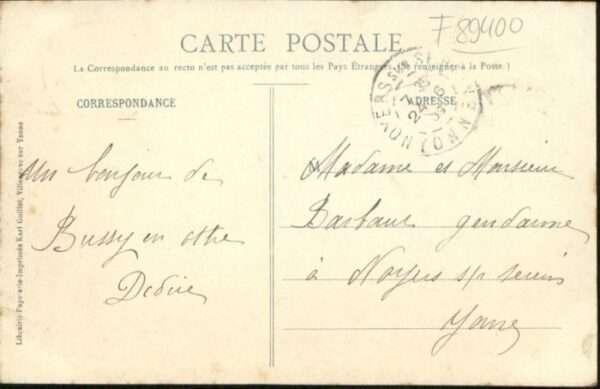 F 89400
CARTE POSTALE
La Correspondance au recto n'est pas acceptée par tous les Pays Étrangers (Se renseigner à la Poste.)
CORRESPONDANCE
ADRESSE
NOYERS-SUR-SEREIN
24
(YONNE)
Un bonjour de
Bussy en othe
Madame et Monsieur
gendarme
à Noyers s/p serein
Yonne
Librairie Papeterie-Imprimée Karl Guillot, Villeneuve sur Yonne